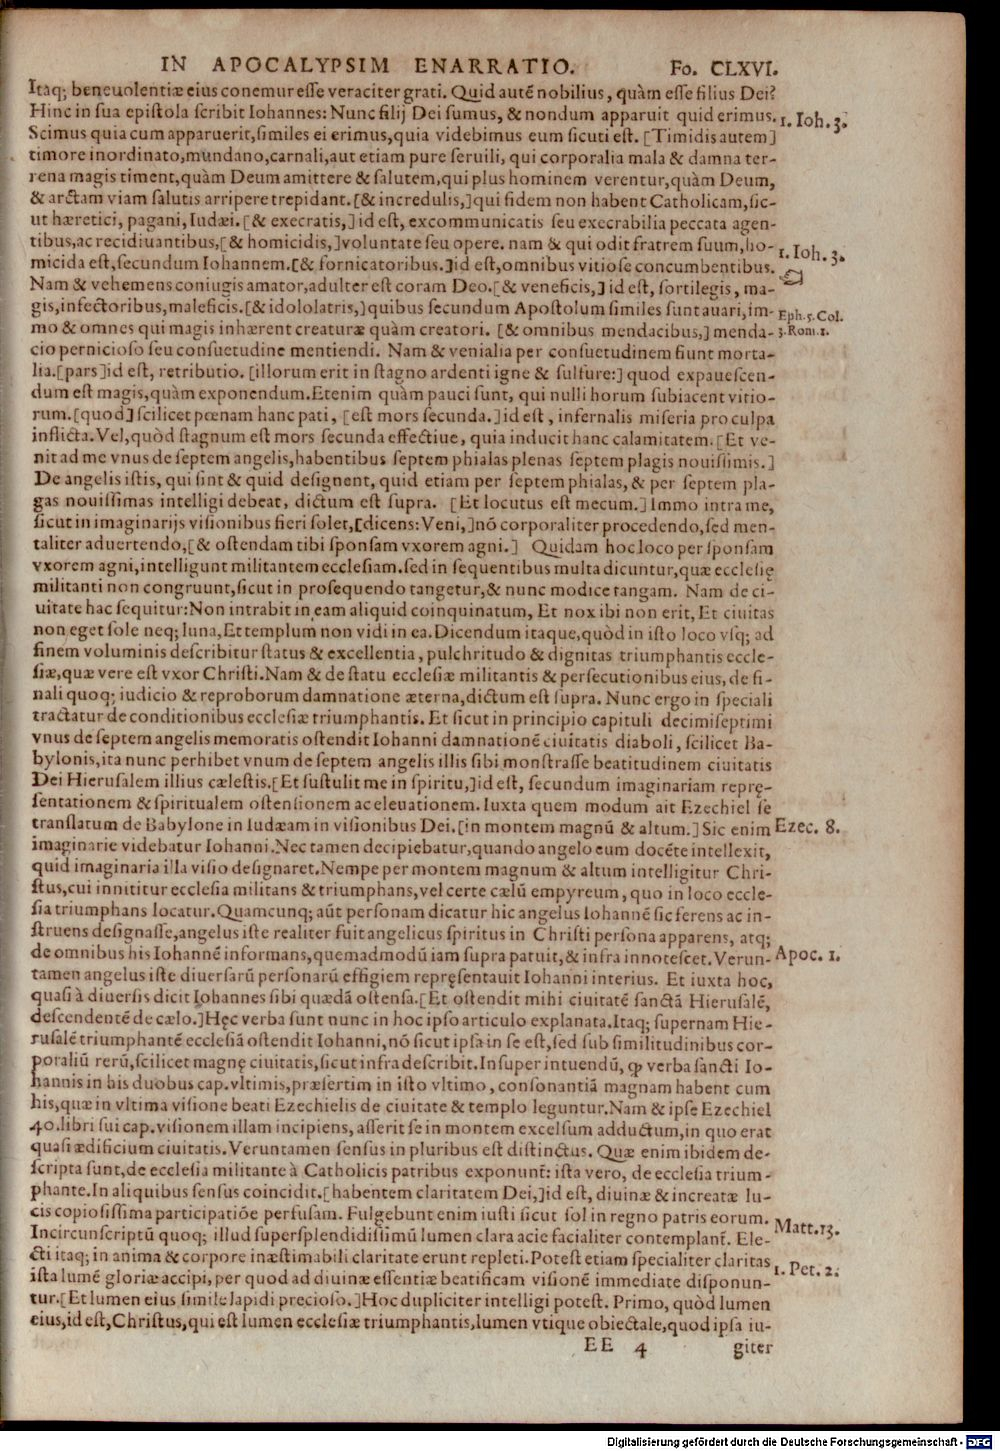 IN APOCALYPSIM ENARRATIO. Fo. CLXVI.
Itaq; beneuolentiæ eius conemur esse veraciter grati. Quid autē nobilius, quàm esse filius Dei?
Hinc in sua epistola scribit Iohannes: Nunc filij Dei sumus, & nondum apparuit quid erimus. 1. Ioh. 3.
Scimus quia cum apparuerit, similes ei erimus, quia videbimus eum sicuti est. [Timidis autem]
timore inordinato, mundano, carnali, aut etiam pure seruili, qui corporalia mala & damna ter-
rena magis timent, quàm Deum amittere & salutem, qui plus hominem verentur, quàm Deum,
& arctam viam salutis arripere trepidant. [& incredulis,] qui fidem non habent Catholicam, sic-
ut hæretici, pagani, Iudæi. [& execratis,] id est, excommunicatis seu execrabilia peccata agen-
tibus, ac recidiuantibus, [& homicidis,] voluntate seu opere. nam & qui odit fratrem suum, ho- 1. Ioh. 3.
micida est, secundum Iohannem. [& fornicatoribus.] id est, omnibus vitiose concumbentibus.
Nam & vehemens coniugis amator, adulter est coram Deo. [& veneficis,] id est, sortilegis, ma-
gis, infectoribus, maleficis. [& idololatris,] quibus secundum Apostolum similes sunt auari, im- Eph. 5. Col.
mo & omnes qui magis inhærent creaturæ quàm creatori. [& omnibus mendacibus,] menda- 3. Rom. 1.
cio pernicioso seu consuetudine mentiendi. Nam & venialia per consuetudinem fiunt morta-
lia. [pars] id est, retributio. [illorum erit in stagno ardenti igne & sulfure:] quod expauescen-
dum est magis, quàm exponendum. Etenim quàm pauci sunt, qui nulli horum subiacent vitio-
rum. [quod] scilicet pœnam hanc pati, [est mors secunda.] id est, infernalis miseria pro culpa
inflicta. Vel, quòd stagnum est mors secunda effectiue, quia inducit hanc calamitatem. [Et ve-
nit ad me vnus de septem angelis, habentibus septem phialas plenas septem plagis nouissimis.]
De angelis istis, qui sint & quid designent, quid etiam per septem phialas, & per septem pla-
gas nouissimas intelligi debeat, dictum est supra. [Et locutus est mecum.] Immo intra me,
sicut in imaginarijs visionibus fieri solet, [dicens: Veni,] nō corporaliter procedendo, sed men-
taliter aduertendo, [& ostendam tibi sponsam vxorem agni.] Quidam hoc loco per sponsam
vxorem agni, intelligunt militantem ecclesiam. sed in sequentibus multa dicuntur, quæ ecclesię
militanti non congruunt, sicut in prosequendo tangetur, & nunc modice tangam. Nam de ci-
uitate hac sequitur: Non intrabit in eam aliquid coinquinatum, Et nox ibi non erit, Et ciuitas
non eget sole neq; luna, Et templum non vidi in ea. Dicendum itaque, quòd in isto loco vsq; ad
finem voluminis describitur status & excellentia, pulchritudo & dignitas triumphantis eccle-
siæ, quæ vere est vxor Christi. Nam & de statu ecclesiæ militantis & persecutionibus eius, de fi-
nali quoq; iudicio & reproborum damnatione æterna, dictum est supra. Nunc ergo in speciali
tractatur de conditionibus ecclesiæ triumphantis. Et sicut in principio capituli decimiseptimi
vnus de septem angelis memoratis ostendit Iohanni damnationē ciuitatis diaboli, scilicet Ba-
bylonis, ita nunc perhibet vnum de septem angelis illis sibi monstrasse beatitudinem ciuitatis
Dei Hierusalem illius cælestis. [Et sustulit me in spiritu,] id est, secundum imaginariam repre-
sentationem & spiritualem ostensionem ac eleuationem. Iuxta quem modum ait Ezechiel se
translatum de Babylone in Iudæam in visionibus Dei. [in montem magnū & altum.] Sic enim Ezec. 8.
imaginarie videbatur Iohanni. Nec tamen decipiebatur, quando angelo eum docēte intellexit,
quid imaginaria illa visio designaret. Nempe per montem magnum & altum intelligitur Chri-
stus, cui innititur ecclesia militans & triumphans, vel certe cælū empyreum, quo in loco eccle-
sia triumphans locatur. Quamcunq; aūt personam dicatur hic angelus Iohannē sic ferens ac in-
struens designasse, angelus iste realiter fuit angelicus spiritus in Christi persona apparens, atq;
de omnibus his Iohannē informans, quemadmodū iam supra patuit, & infra innotescet. Verun- Apoc. 1.
tamen angelus iste diuersarū personarū effigiem repręsentauit Iohanni interius. Et iuxta hoc,
quasi à diuersis dicit Iohannes sibi quædā ostensa. [Et ostendit mihi ciuitatē sanctā Hierusalē,
descendentē de cælo.] Hęc verba sunt nunc in hoc ipso articulo explanata. Itaq; supernam Hie-
rusalē triumphantē ecclesiā ostendit Iohanni, nō sicut ipsa in se est, sed sub similitudinibus cor-
poraliū rerū, scilicet magnę ciuitatis, sicut infra describit. Insuper intuendū, ꝙ verba sancti Io-
hannis in his duobus cap. vltimis, præsertim in isto vltimo, consonantiā magnam habent cum
his, quæ in vltima visione beati Ezechielis de ciuitate & templo leguntur. Nam & ipse Ezechiel
40. libri sui cap. visionem illam incipiens, asserit se in montem excelsum adductum, in quo erat
quasi ædificium ciuitatis. Veruntamen sensus in pluribus est distinctus. Quæ enim ibidem de-
scripta sunt, de ecclesia militante à Catholicis patribus exponunt̃: ista vero, de ecclesia trium-
phante. In aliquibus sensus coincidit. [habentem claritatem Dei,] id est, diuinæ & increatæ lu-
cis copiosissima participatiōe perfusam. Fulgebunt enim iusti sicut sol in regno patris eorum. Matt. 13.
Incircunscriptū quoq; illud supersplendidissimū lumen clara acie facialiter contemplant̃. Ele-
cti itaq; in anima & corpore inæstimabili claritate erunt repleti. Potest etiam specialiter claritas 1. Pet. 2.
ista lumē gloriæ accipi, per quod ad diuinæ essentiæ beatificam visionē immediate disponun-
tur. [Et lumen eius simile lapidi precioso.] Hoc dupliciter intelligi potest. Primo, quòd lumen
eius, id est, Christus, qui est lumen ecclesiæ triumphantis, lumen vtique obiectale, quod ipsa iu-
EE 4 giter
Digitalisierung gefördert durch die Deutsche Forschungsgemeinschaft - DFG